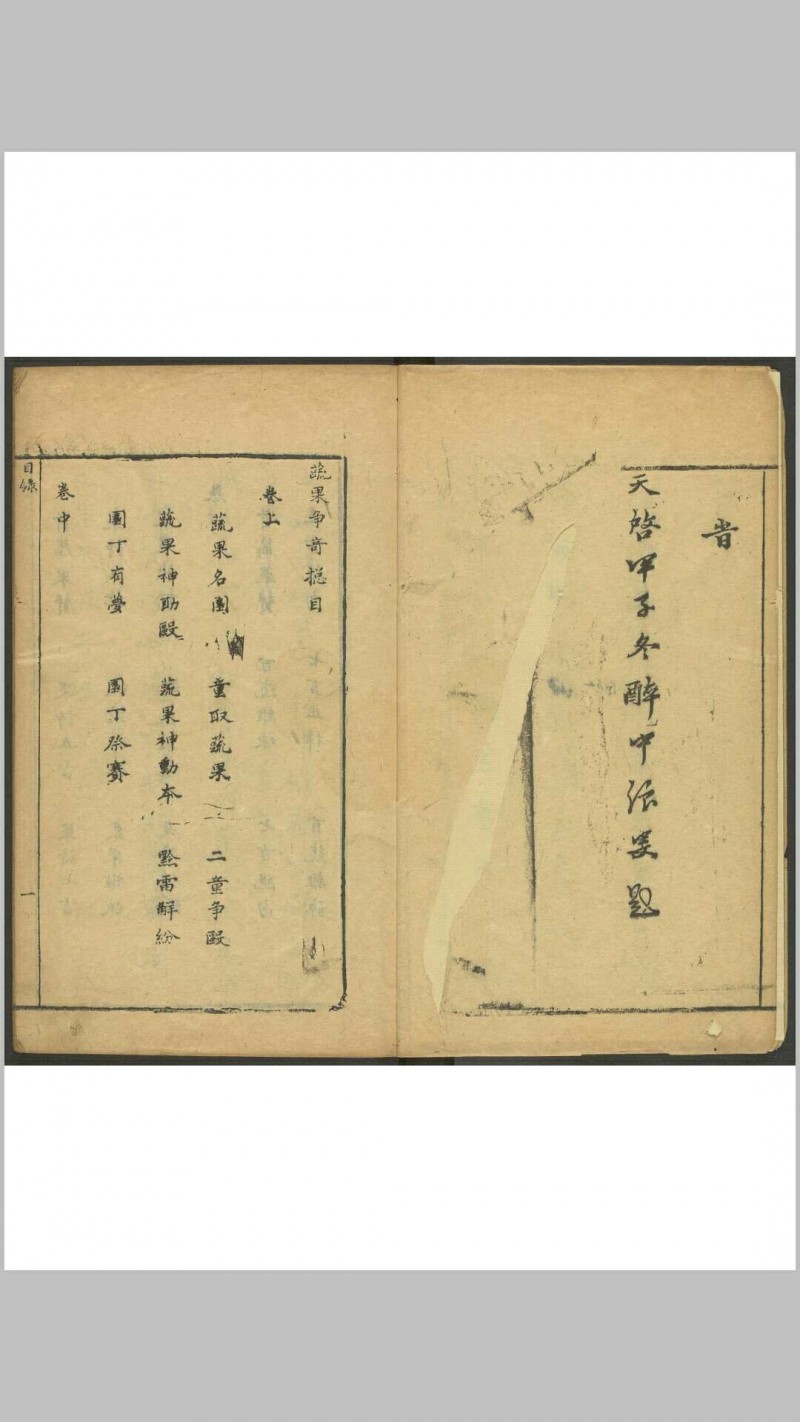 昔
天啓甲子冬醉中浪叟題
蔬果争奇揔目
卷上
蔬果名園 童取蔬果 二童争毆
蔬果神助毆 蔬果神動本 點雷解紛
園丁有夢 園丁祭賽
卷中
目録
一